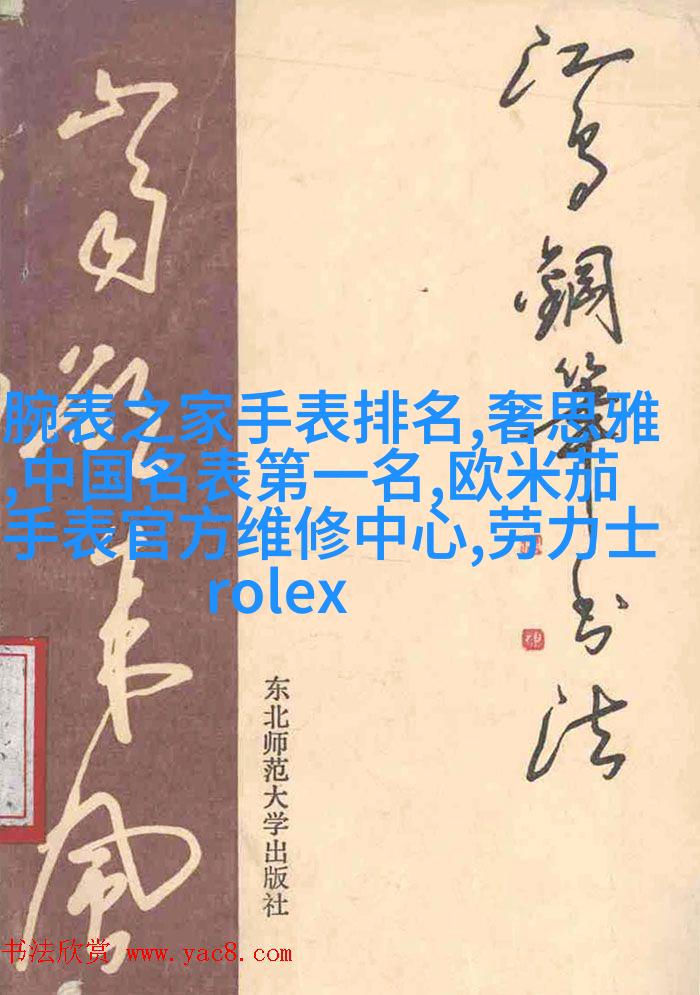 江鸟鋼筆书法
腕表之家手表排名,奢思雅
,中国名表第一名,欧米茄
手表官方维修中心,劳力士
rolex
东北师范大学出版社
书法欣赏 www.yac8.com